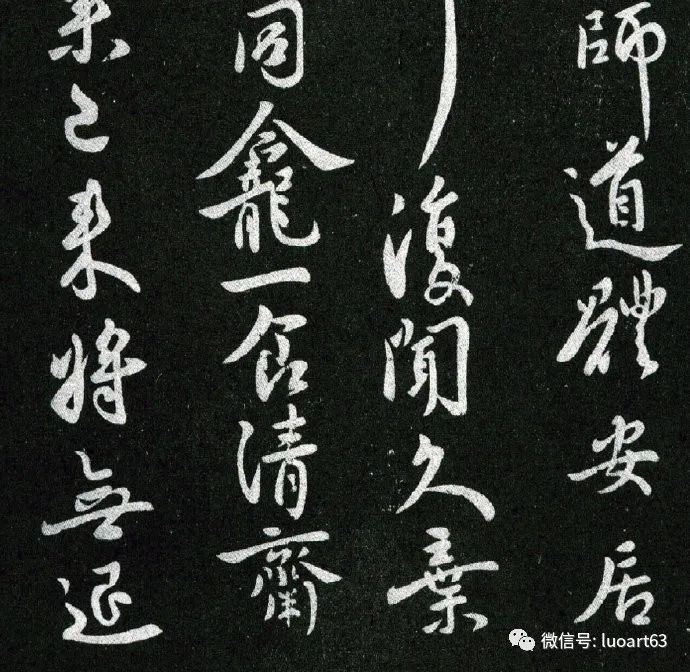 師道體安居
復聞久棄
同龕一食清齋
果已来將無退
微信号: luoart63